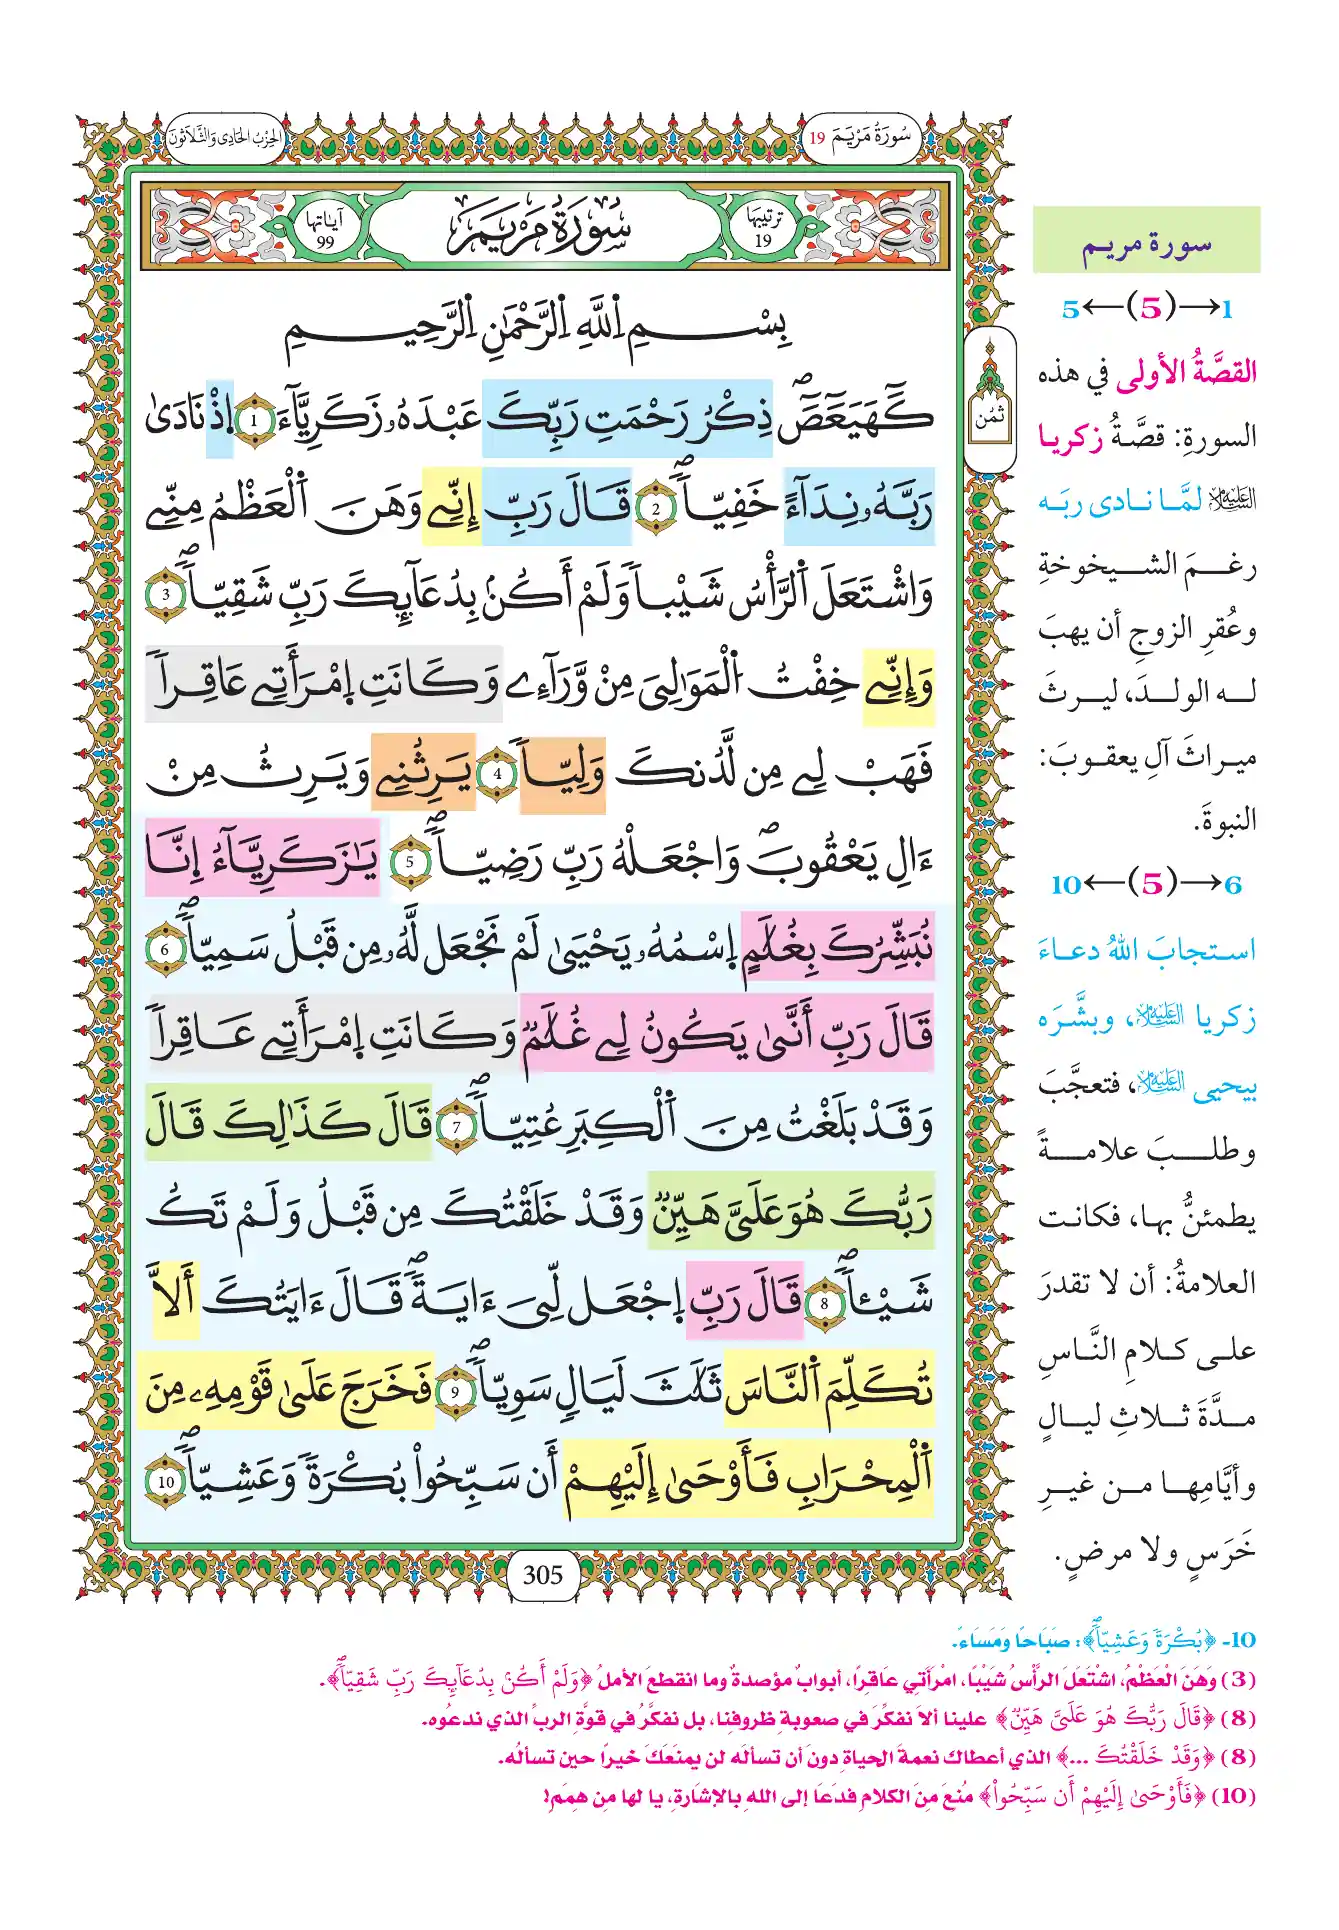 سُورَةُ مَرْيَمَ 19
الحِزْبُ الحَادِي وَالثَّلَاثُونَ
ترتيبها 19
سُورَةُ مَرْيَمَ
آياتها 99
بِسْمِ اِ۬للَّهِ اِ۬لرَّحْمَٰنِ اِ۬لرَّحِيمِ
كَٓهَيَعَٓصَٓۖ ذِكْرُ رَحْمَتِ رَبِّكَ عَبْدَهُۥ زَكَرِيَّآءَ 1 اِذْ نَادَىٰ
رَبَّهُۥ نِدَآءً خَفِيّاٗۖ 2 قَالَ رَبِّ إِنِّے وَهَنَ اَ۬لْعَظْمُ مِنِّے
وَاشْتَعَلَ اَ۬لرَّأْسُ شَيْباٗ وَلَمْ أَكُنۢ بِدُعَآئِكَ رَبِّ شَقِيّاٗۖ 3
وَإِنِّے خِفْتُ اُ۬لْمَوَٰلِيَ مِنْ وَّرَآءِے وَكَانَتِ اِ۪مْرَأَتِے عَاقِراٗ
فَهَبْ لِے مِن لَّدُنكَ وَلِيّاٗ 4 يَرِثُنِے وَيَرِثُ مِنْ
ءَالِ يَعْقُوبَۖ وَاجْعَلْهُ رَبِّ رَضِيّاٗۖ 5 يَٰزَكَرِيَّآءُ اِنَّا
نُبَشِّرُكَ بِغُلَٰمٍ اِ۪سْمُهُۥ يَحْيَىٰ لَمْ نَجْعَل لَّهُۥ مِن قَبْلُ سَمِيّاٗۖ 6
قَالَ رَبِّ أَنَّىٰ يَكُونُ لِے غُلَٰمٞ وَكَانَتِ اِ۪مْرَأَتِے عَاقِراٗ
وَقَدْ بَلَغْتُ مِنَ اَ۬لْكِبَرِ عُتِيّاٗۖ 7 قَالَ كَذَٰلِكَ قَالَ
رَبُّكَ هُوَ عَلَيَّ هَيِّنٞ وَقَدْ خَلَقْتُكَ مِن قَبْلُ وَلَمْ تَكُ
شَيْـٔاٗۖ 8 قَالَ رَبِّ اِ۪جْعَل لِّيَ ءَايَةٗۖ قَالَ ءَايَتُكَ أَلَّا
تُكَلِّمَ اَ۬لنَّاسَ ثَلَٰثَ لَيَالٖ سَوِيّاٗۖ 9 فَخَرَجَ عَلَىٰ قَوْمِهِۦ مِنَ
اَ۬لْمِحْرَابِ فَأَوْحَىٰ إِلَيْهِمْ أَن سَبِّحُواْ بُكْرَةٗ وَعَشِيّاٗۖ 10
305
ثمُن
سورة مريم
1→(5)←5
القصَّةُ الأولى في هذه
السورةِ: قصَّةُ زكريا
عَلَيْهِ السَّلَامُ لمَّا نادى ربه
رغمَ الشيخوخةِ
وعُقرِ الزوجِ أن يهبَ
له الولدَ، ليرثَ
ميراثَ آلِ يعقوبَ:
النبوةَ.
6→(5)←10
استجابَ اللهُ دعاءَ
زكريا عَلَيْهِ السَّلَامُ، وبشَّرَه
بيحيى عَلَيْهِ السَّلَامُ، فتعجَّبَ
وطلبَ علامةً
يطمئنُّ بها، فكانت
العلامةُ: أن لا تقدرَ
على كلامِ النَّاسِ
مدَّةَ ثلاثِ ليالٍ
وأيَّامِها من غيرِ
خَرَسٍ ولا مرضٍ.
10- ﴿بُكْرَةٗ وَعَشِيّاٗۖ﴾: صَبَاحًا وَمَسَاءً.
(3) وَهَنَ الْعَظْمُ، اشْتَعَلَ الرَّأْسُ شَيْبًا، امْرَأَتِي عَاقِرًا، أبوابٌ مؤصدةٌ وما انقطعَ الأملُ ﴿وَلَمْ أَكُنۢ بِدُعَآئِكَ رَبِّ شَقِيّاٗۖ﴾.
(8) ﴿قَالَ رَبُّكَ هُوَ عَلَيَّ هَيِّنٞ﴾ علينا ألاَ نفكِّرَ في صعوبةِ ظروفِنا، بل نفكِّرُ في قوَّةِ الربِّ الذي ندعُوه.
(8) ﴿وَقَدْ خَلَقْتُكَ ...﴾ الذي أعطاك نعمةَ الحياةِ دونَ أن تسألَه لن يمنَعَكَ خيرًا حين تسألُه.
(10) ﴿فَأَوْحَىٰ إِلَيْهِمْ أَن سَبِّحُواْ﴾ مُنعَ مِنَ الكلامِ فدَعَا إلى اللهِ بالإشارةِ، يا لها مِن هِمَمٍ!